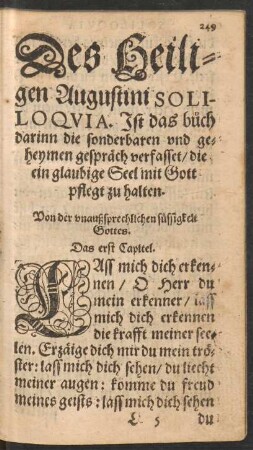 249
Des Heili-
gen Augustini SOLI-
LOQVIA. Ist das büch
darinn die sonderbaren vnd ge-
heymen gespräch verfasset/ die
ein glaubige Seel mit Gott
pflegt zu halten.
Von der vnaußsprechlichen süssigkeit
Gottes.
Das erst Capitel.
LAss mich dich erken-
nen/ O Herr du
mein erkenner/ lass
mich dich erkennen
die krafft meiner see-
len. Erzäige dich mir du mein trö-
ster: lass mich dich sehen/ du liecht
meiner augen: komme du freud
meines geists: lass mich dich sehen
5 du